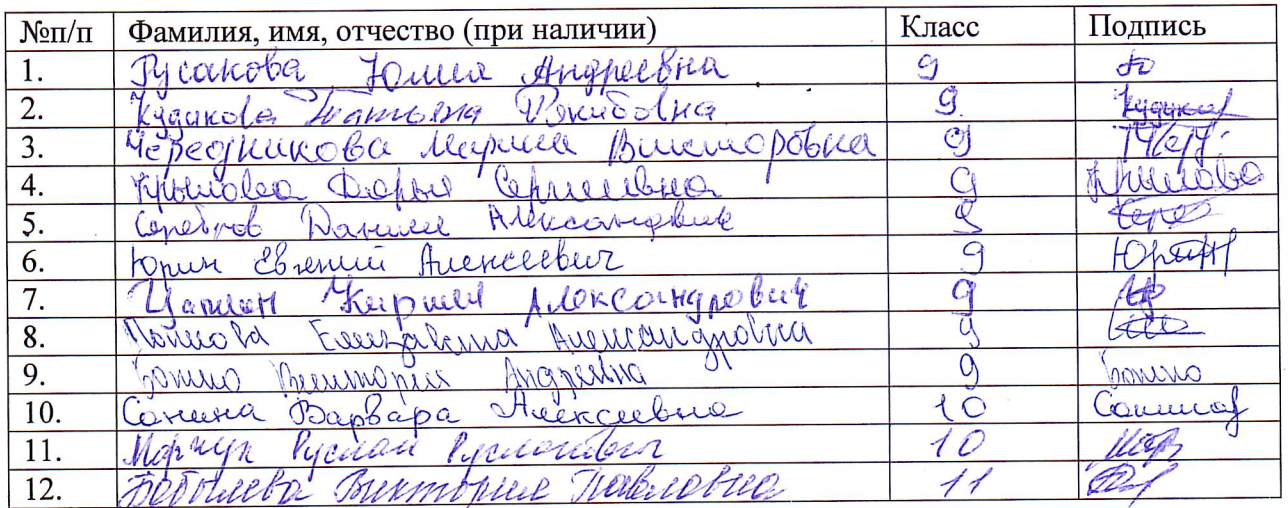 №п/п Фамилия, имя, отчество (при наличии) Класс Подпись
1. Русакова Юлия Андреевна 9
2. Кудакова Татьяна 9. Кудаков
3. Чередникова Марина Викторовна 9
4. Крылова Дарья Сергеевна 9 Крылова
5. Серебров Даниил Александвич 9 Сере
6. Юрин Евгений Алексеевич 9 Юрин
7. Цаплин Кирилл Александрович 9
8. Елизавета Александровна 9
9. Виктория Андреевна 9
10. Санина Варвара Алексеевна 10
11. Марчук Руслан Русланович 10 Мар
12. Бобылева Виктория Павловна 11